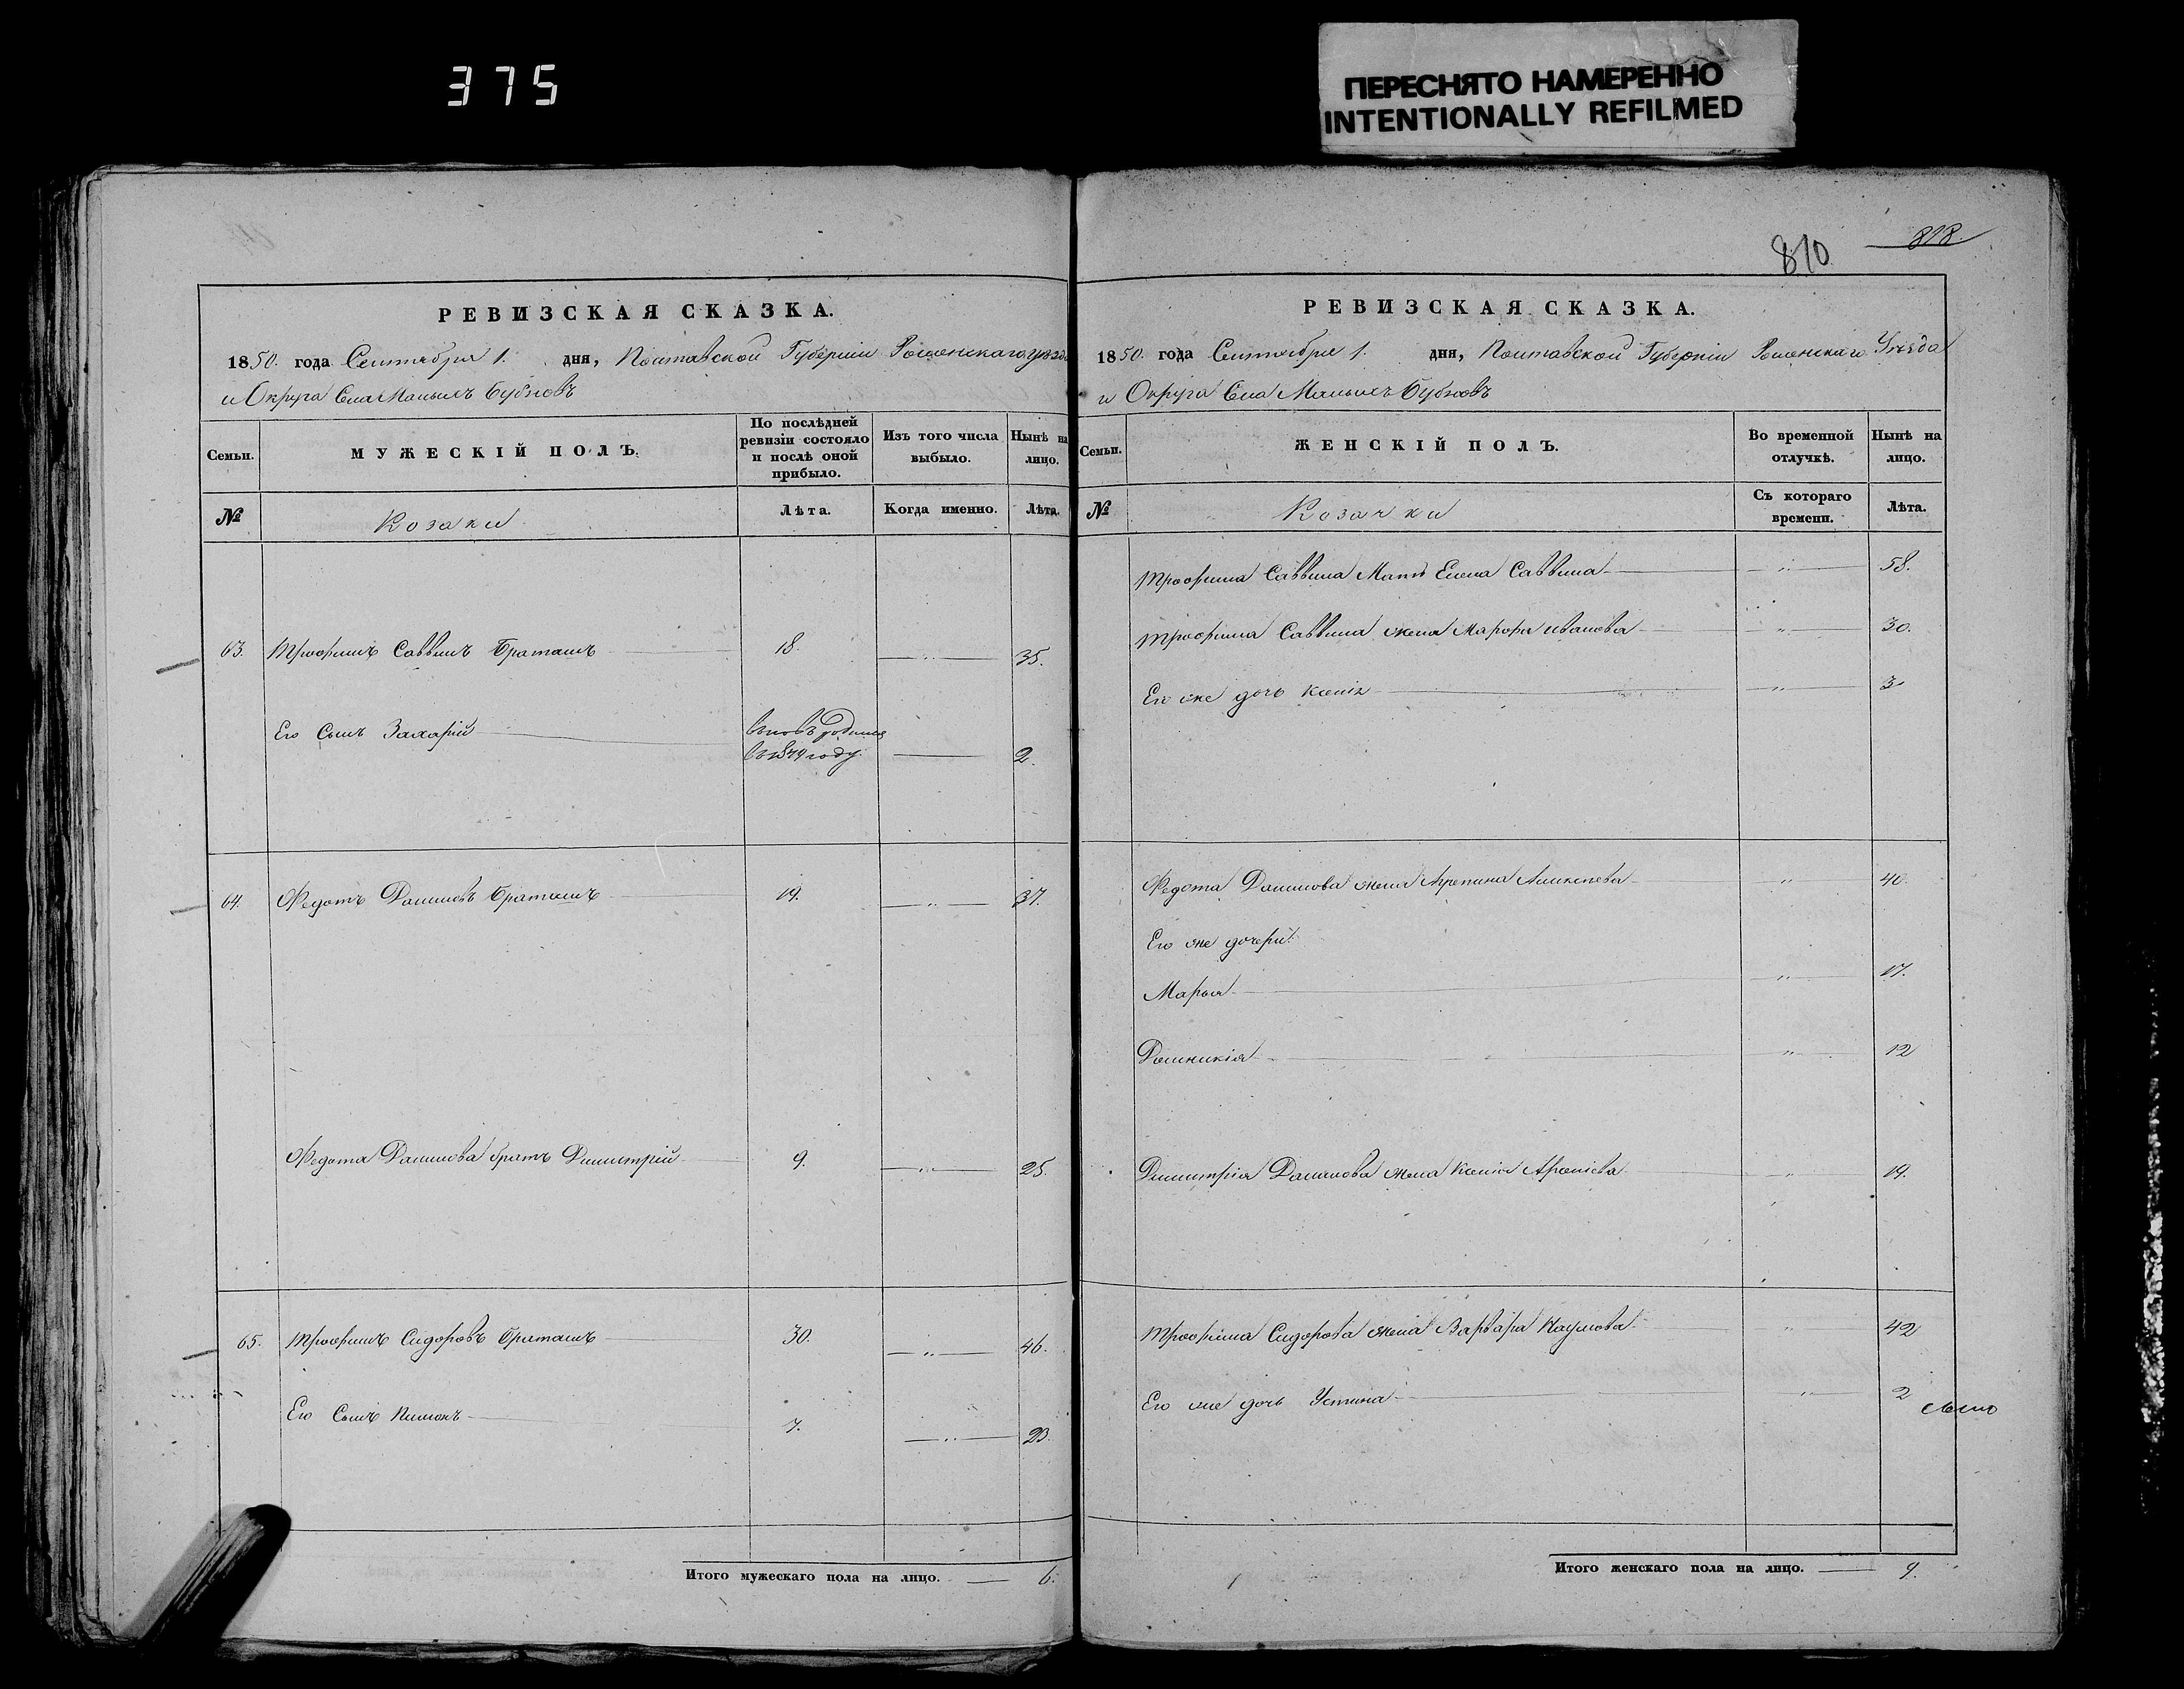 375
ПЕРЕСНЯТО НАМЕРЕННО
INTENTIONALLY REFILMED
810 818.
РЕВИЗСКАЯ СКАЗКА.
1850. года Сентября 1. дня, Полтавской Губерніи Роменскаго уезда
и Округа Села Малыхъ Бубновъ
Семьи.
МУЖЕСКІЙ ПОЛЪ.
По послѣдней ревизіи состояло и послѣ оной прибыло.
Изъ того числа выбыло.
Нынѣ на лицо.
№
Козаки
Лѣта.
Когда именно.
Лѣта.
63. Трофимъ Саввинъ Браташъ 18. — " — 35.
Его Сынъ Захарій вновь родился в 1849 году. — 2.
64. Федотъ Даниловъ Браташъ 19. — " — 37.
Федота Данилова братъ Димитрій 9. — " — 25.
65. Трофимъ Сидоровъ Браташъ 30. — " — 46.
Его Сынъ Пименъ 7. — " — 23.
Итого мужескаго пола на лицо. — 6.
РЕВИЗСКАЯ СКАЗКА.
1850. года Сентября 1. дня, Полтавской Губерніи Роменскаго Уезда
и Округа Села Малыхъ Бубновъ
Семьи.
ЖЕНСКІЙ ПОЛЪ.
Во временной отлучкѣ.
Нынѣ на лицо.
№
Козачки
Съ котораго времени.
Лѣта.
Трофима Саввина Мать Елена Саввина — " — 58.
Трофима Саввина жена Марфа Иванова — " — 30.
Его же дочь Ксенія — " — 3
Федота Данилова жена Агрепина Алексеева " 40.
Его же дочери:
Марья — " — 17.
Домникія — " — 12
Димитрія Данилова жена Ксенія — " — 19.
Трофима Сидорова жена Варвара Наумова " 42
Его же дочь Устина — " 2
Итого женскаго пола на лицо. — 9.